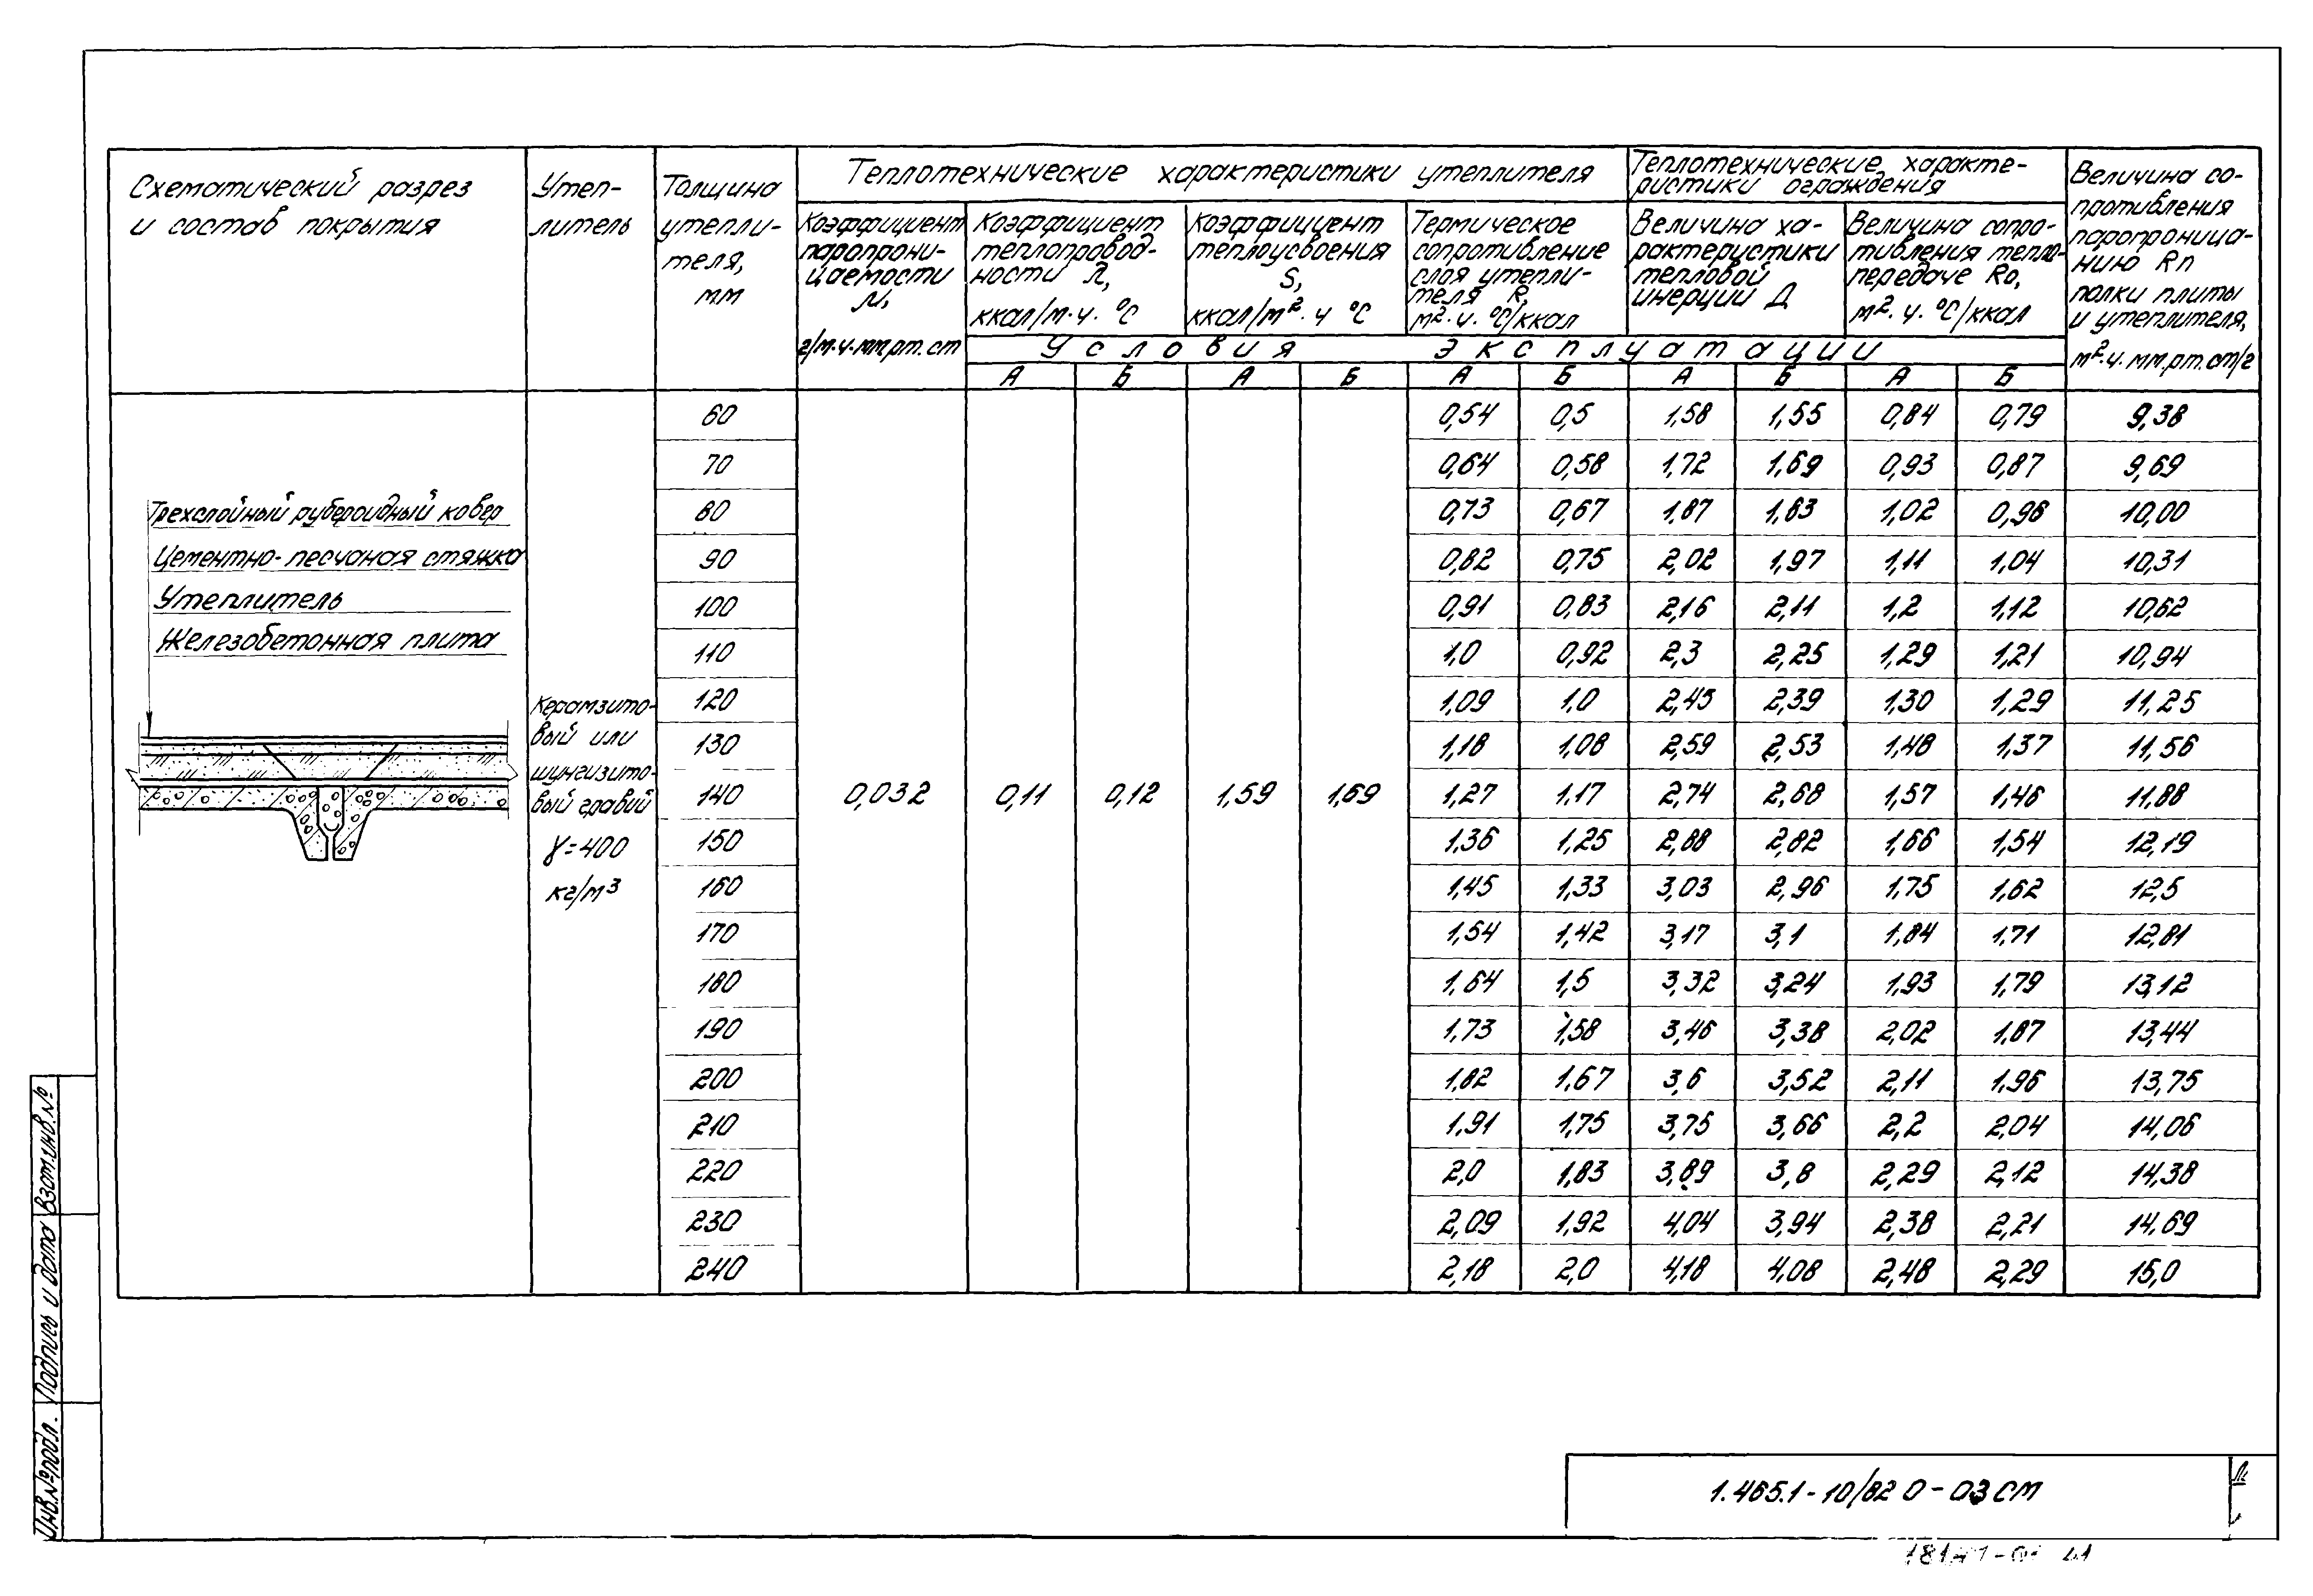 Схематический разрез
и состав покрытия
Утеп-
литель
Толщина
утепли-
теля,
мм
Теплотехнические характеристики утеплителя
Теплотехнические характе-
ристики ограждения
Величина со-
противления
паропроница-
нию Rп
полки плиты
и утеплителя,
м²·ч·мм.рт.ст/г
Коэффициент
паропрони-
цаемости
μ,
г/м·ч·мм.рт.ст
Коэффициент
теплопровод-
ности λ,
ккал/м·ч·°С
Коэффициент
теплоусвоения
S,
ккал/м²·ч °С
Термическое
сопротивление
слоя утепли-
теля R,
м²·ч·°С/ккал
Величина ха-
рактеристики
тепловой
инерции Д
Величина сопро-
тивления тепло-
передаче Rо,
м²·ч·°С/ккал
Условия эксплуатации
А Б А Б А Б А Б А Б
Трехслойный рубероидный ковер
Цементно-песчаная стяжка
Утеплитель
Железобетонная плита
Керамзито-
вый или
шунгизито-
вый гравий
γ=400
кг/м³
60 0,54 0,5 1,58 1,55 0,84 0,79 9,38
70 0,64 0,58 1,72 1,69 0,93 0,87 9,69
80 0,73 0,67 1,87 1,83 1,02 0,96 10,00
90 0,82 0,75 2,02 1,97 1,11 1,04 10,31
100 0,91 0,83 2,16 2,11 1,2 1,12 10,62
110 1,0 0,92 2,3 2,25 1,29 1,21 10,94
120 1,09 1,0 2,45 2,39 1,30 1,29 11,25
130 1,18 1,08 2,59 2,53 1,48 1,37 11,56
140 0,032 0,11 0,12 1,59 1,69 1,27 1,17 2,74 2,68 1,57 1,46 11,88
150 1,36 1,25 2,88 2,82 1,66 1,54 12,19
160 1,45 1,33 3,03 2,96 1,75 1,62 12,5
170 1,54 1,42 3,17 3,1 1,84 1,71 12,81
180 1,64 1,5 3,32 3,24 1,93 1,79 13,12
190 1,73 1,58 3,46 3,38 2,02 1,87 13,44
200 1,82 1,67 3,6 3,52 2,11 1,96 13,75
210 1,91 1,75 3,75 3,66 2,2 2,04 14,06
220 2,0 1,83 3,89 3,8 2,29 2,12 14,38
230 2,09 1,92 4,04 3,94 2,38 2,21 14,69
240 2,18 2,0 4,18 4,08 2,48 2,29 15,0
Инв.№подл. Подпись и дата Взам.инв.№
1.465.1-10/82 0-03СМ